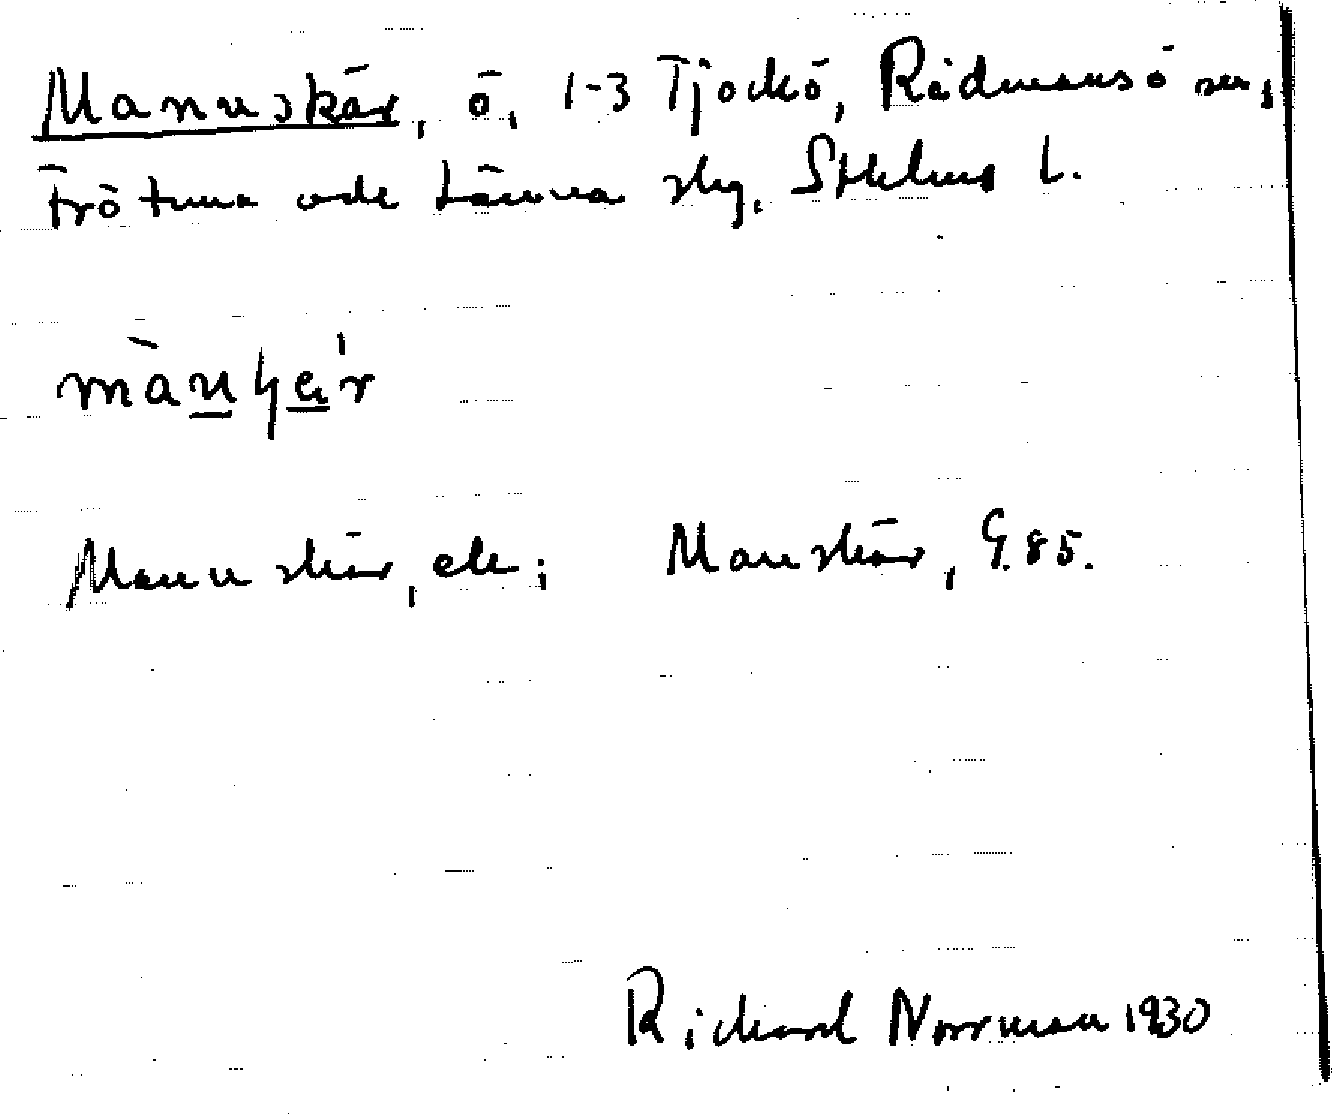 Mannskär, ö, 1-3 Tjockö, Rådmansö sn,
Frötuna och Länna skg, Sthlms l.
Mannskär, ek; Manskär, G.85.
Richard Norrman 1930